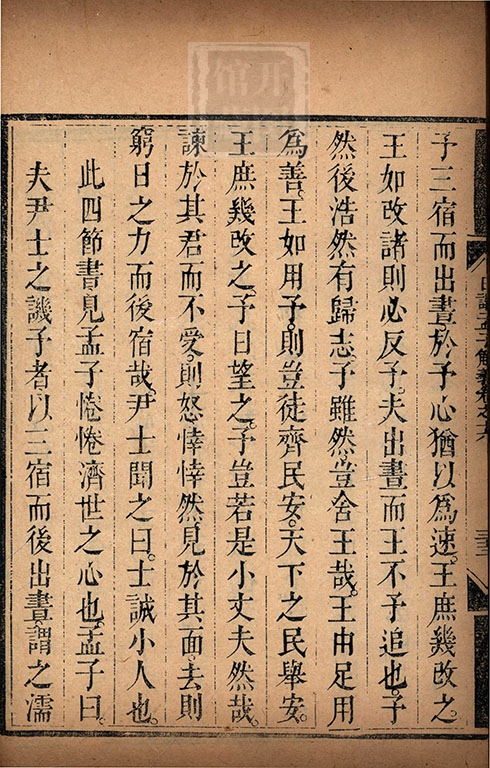 予三宿而出晝於予心猶以為速王庶幾改之
王如改諸則必反予夫出晝而王不予追也予
然後浩然有歸志予雖然豈舍王哉王由足用
為善王如用予則豈徒齊民安天下之民舉安
王庶幾改之予日望之予豈若是小丈夫然哉
諫於其君而不受則怒悻悻然見於其面去則
窮日之力而後宿哉尹士聞之曰士誠小人也
此四節書見孟子惓惓濟世之心也孟子曰
夫尹士之譏予者以三宿而後出晝謂之濡